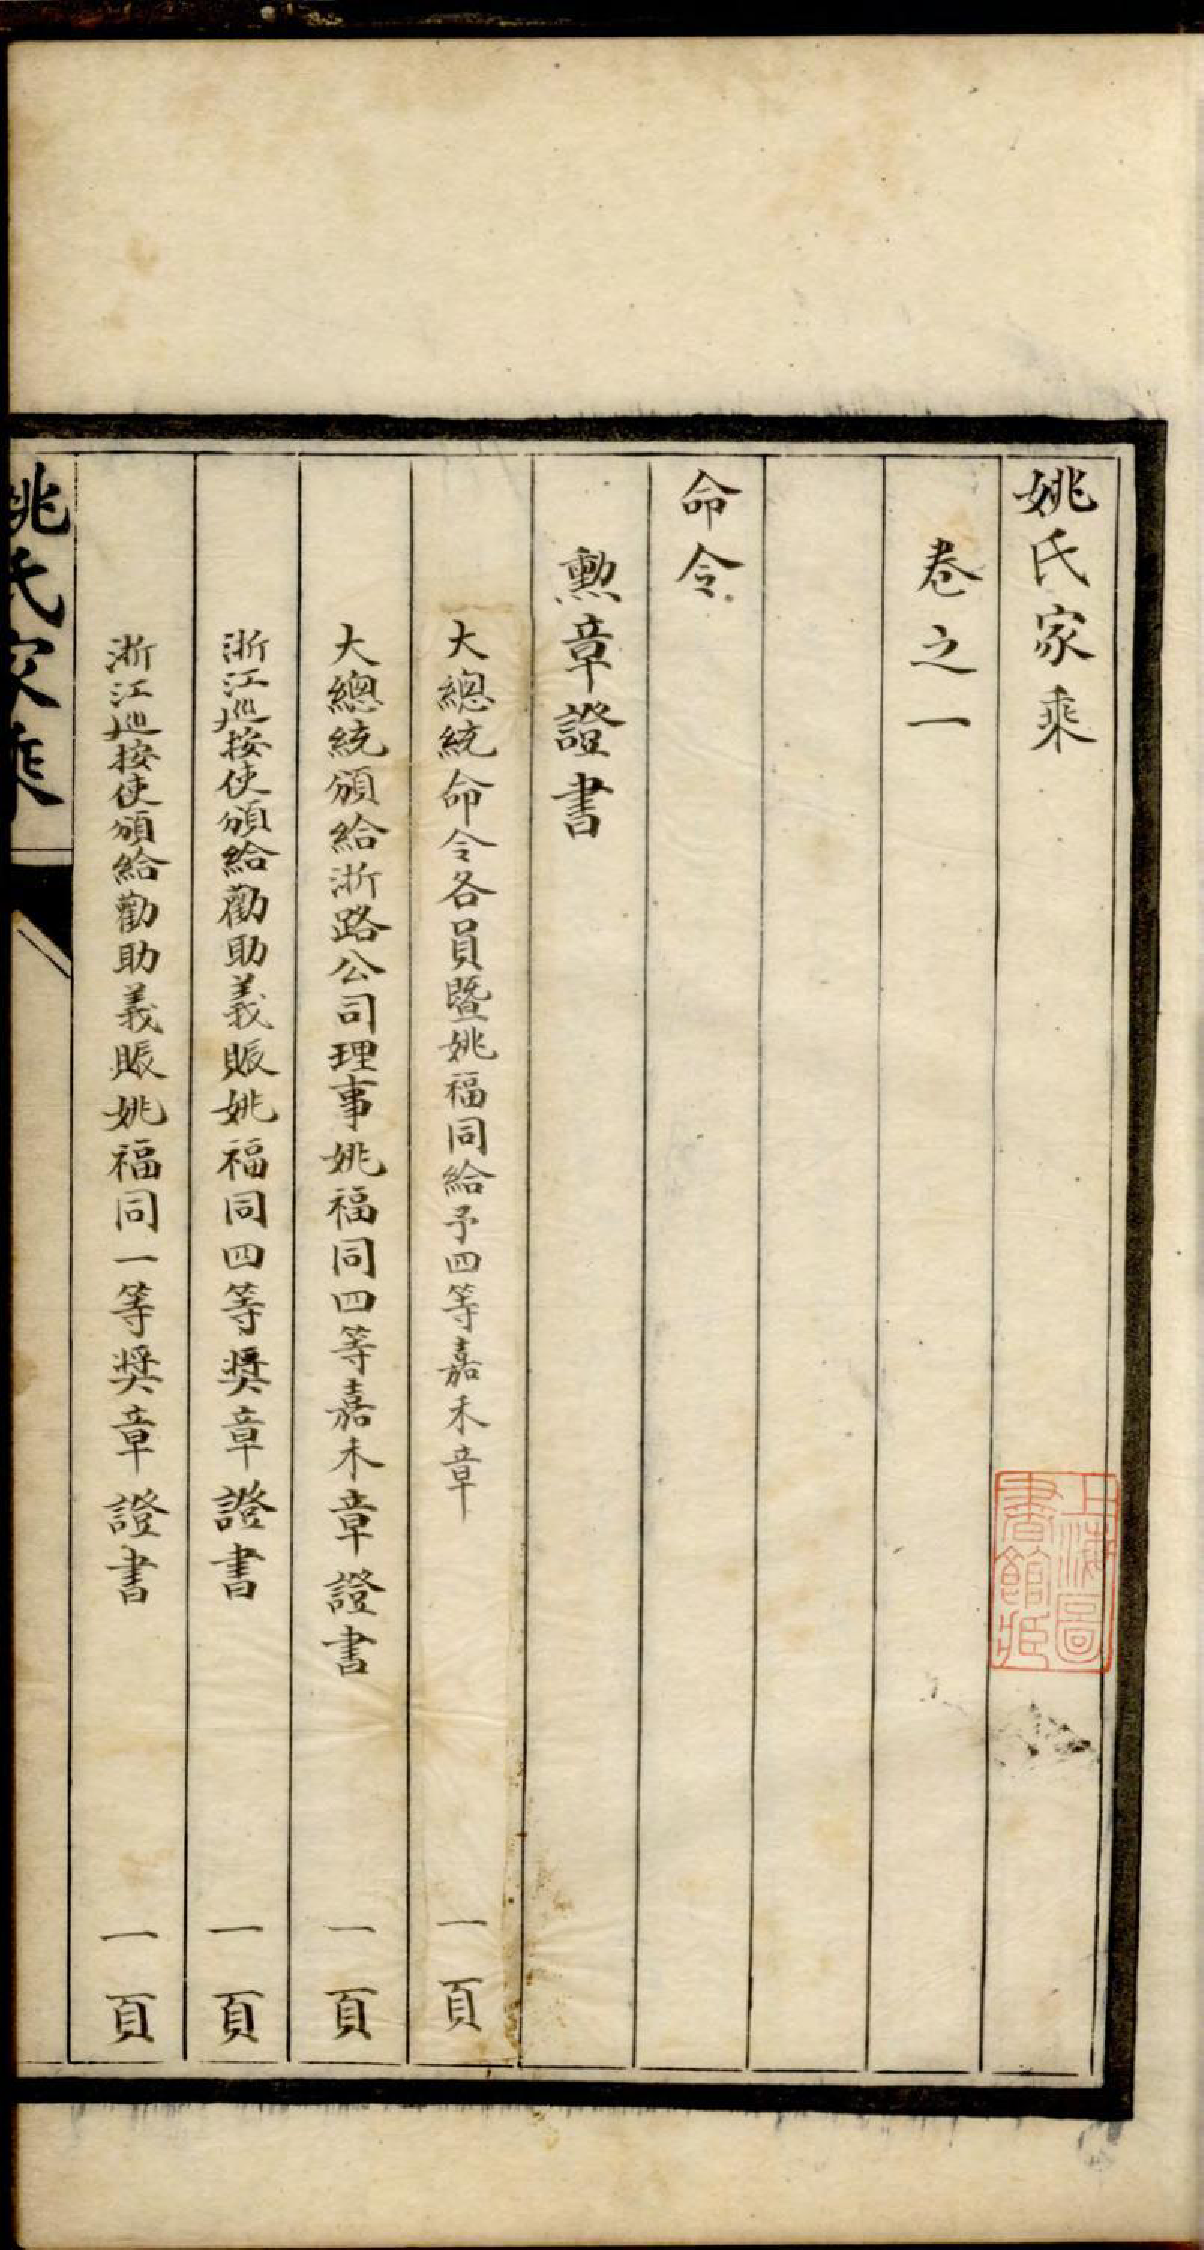 姚氏家乘
卷之一
命令
勲章證書
大總統命令各員暨姚福同給予四等嘉禾章 一頁
大總統頒給浙路公司理事姚福同四等嘉禾章證書 一頁
浙江巡按使頒給勸助義賑姚福同四等奬章證書 一頁
浙江巡按使頒給勸助義賑姚福同一等奬章證書 一頁
姚氏家乘
上海圖
書館藏